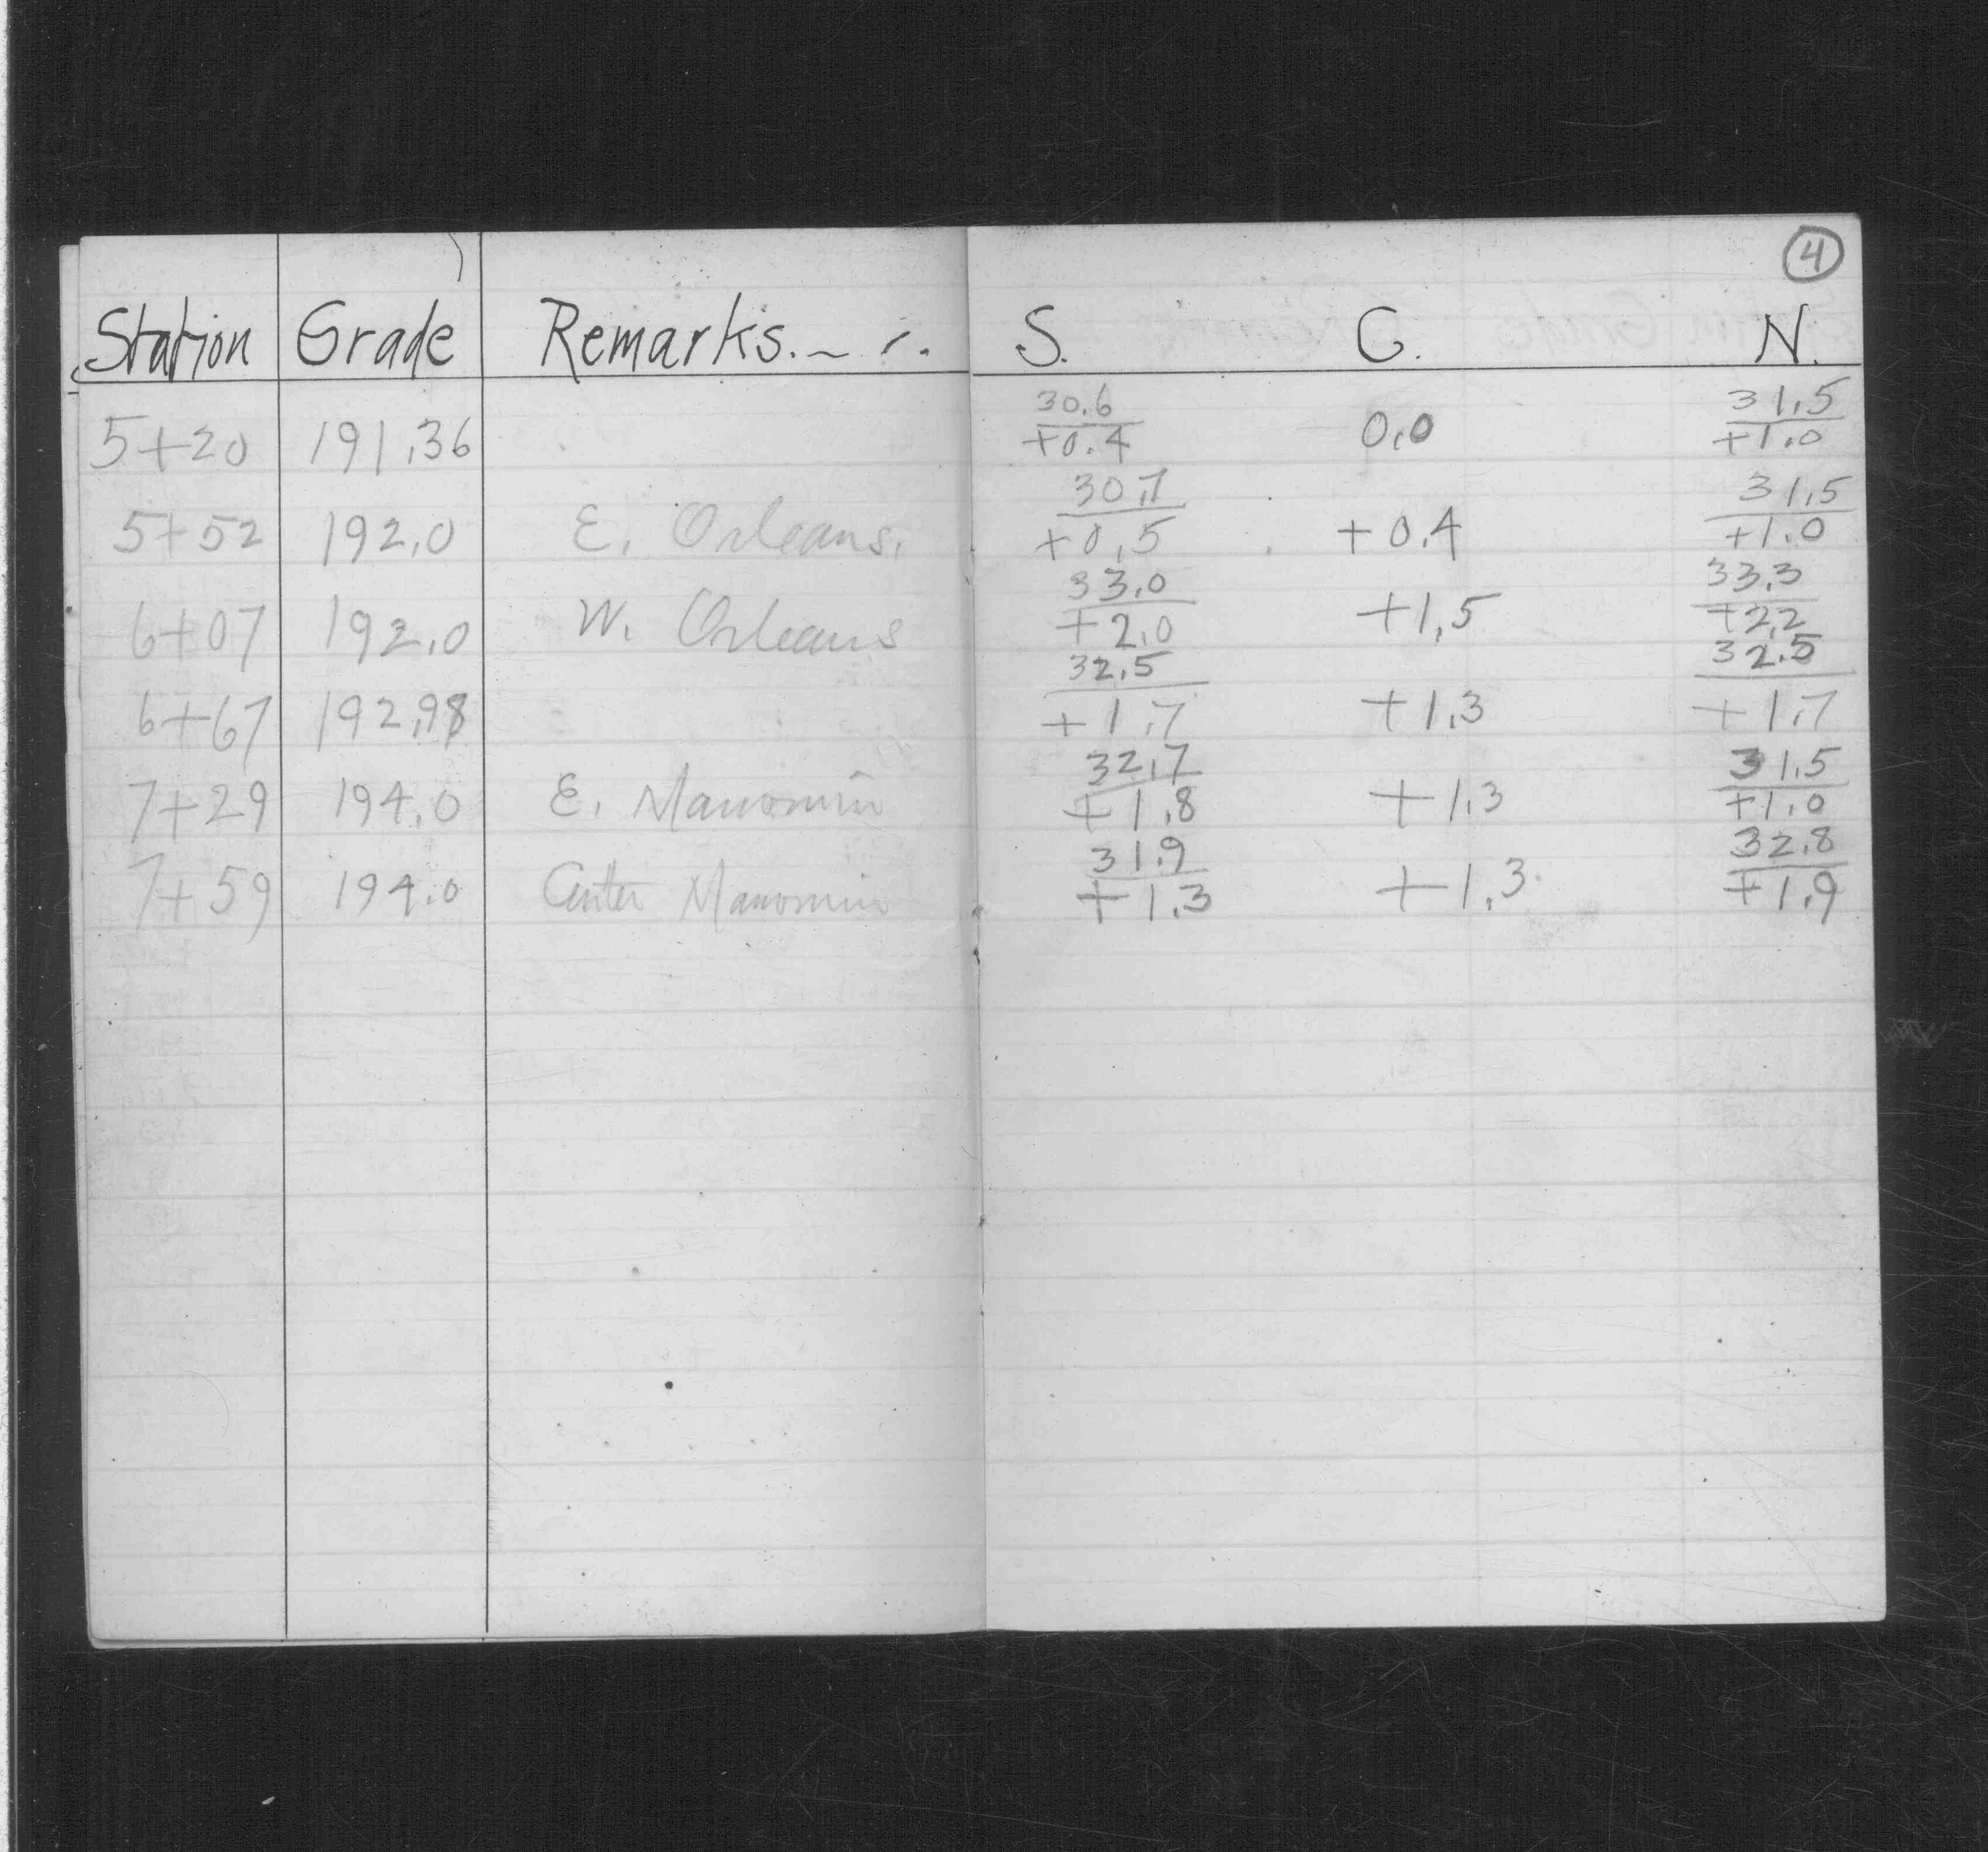 4
Station Grade Remarks. S. C. N.
30.6 31.5
5+20 191.36 +0.4 0.0 +1.0
30.7 31.5
5+52 192.0 E. Orleans. +0.5 +0.4 +1.0
33.0 33.3
6+07 192.0 W. Orleans +2.0 +1.5 +2.2
32.5 32.5
6+67 192.98 +1.7 +1.3 +1.7
32.7 31.5
7+29 194.0 E. Manomin +1.8 +1.3 +1.0
31.9 32.8
7+59 194.0 Center Manomin +1.3 +1.3 +1.9